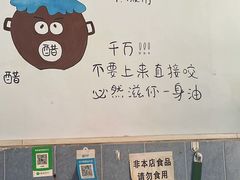 醋
醋
千万!!!
不要上来直接咬
必然滋你一身油
非本店食品
请勿食用